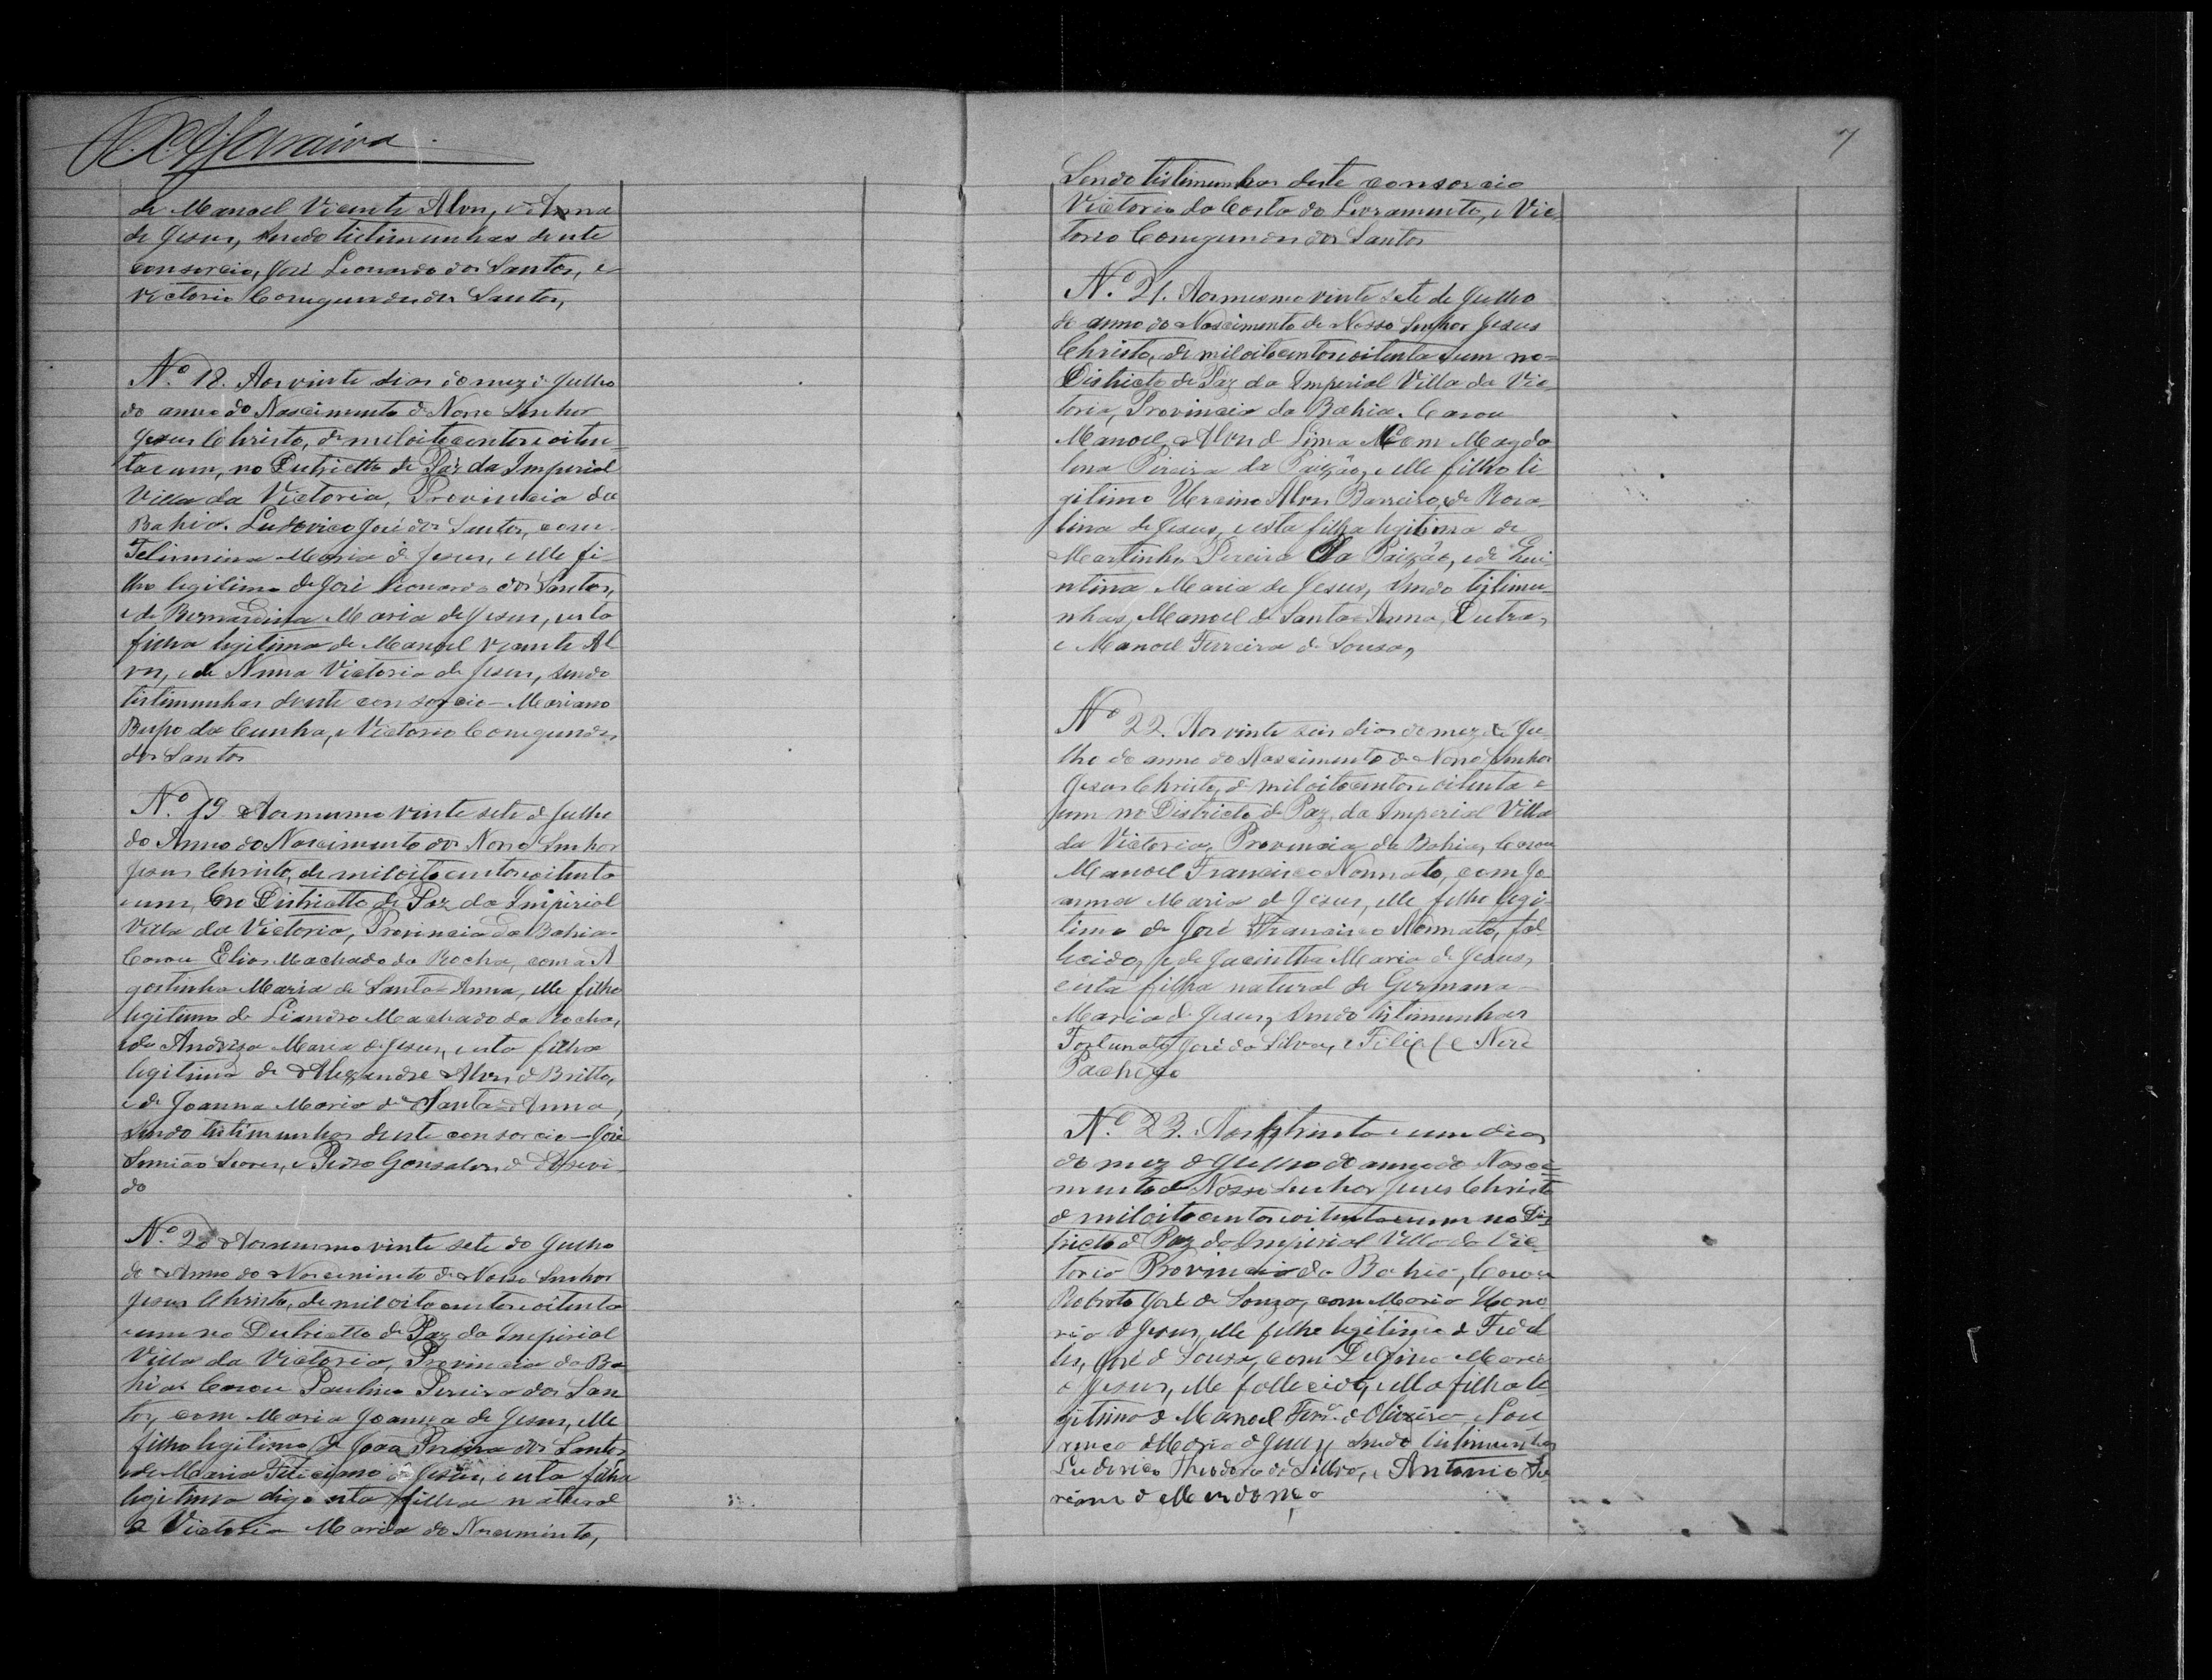 de Manoel Vicente Alves, e Anna
de Jesus, sendo tistimunhas deste
consorcio, José Leonardo dos Santos, e
Victorio Conegundes dos Santos,
Nº 18. Aos vinte dias do mez de Julho
do anno do Nascimento de Nosso Senhor
Jesus Christo, de mil oito centos e oiten-
ta e um, no Districtto de Paz da Imperial
Villa da Victoria, Provincia da
Bahia. Ludovico José dos Santos, com
Felismina Maria de Jesus, elle fi-
lho legitimo de José Leonardo dos Santos,
e de Bernardina Maria de Jesus, esta
filha legitima de Manoel Vicente Al
ves, e de Anna Victoria de Jesus, sendo
tistimunhas deste consorcio - Mariano
Bispo da Cunha, e Victorio Conegundes
dos Santos
Nº 19 Aos mesmo vinte sete de Julho
do Anno do Nascimento dos Nosso Senhor
Jesus Christo, de mil oito centos e oitenta
e um, no Districtto de Paz da Imperial
Villa da Victoria, Provincia da Bahia-
Casou Elias Machado da Rocha, com a A
gostinha Maria de Santa Anna, elle filho
legitimo de Leandro Machado da Rocha,
e de Andreza Maria de Jesus, e esta filha
legitima de Alexandre Alves de Britto,
e de Joanna Maria de Santa Anna,
sendo tistimunhas deste consorcio - José
Simião Soares, e Pedro Gonsalves de
do
Nº 20 Aos mesmo vinte sete do Julho
do Anno do Nascimento de Nosso Senhor
Jesus Christo, de mil oito centos e oitenta
e um no Districtto de Paz da Imperial
Villa da Victoria, Provincia da Ba
hia Casou Paulino Pereira dos San
tos, com Maria Joanna de Jesus, elle
filho legitimo de João Pereira dos Santos
e de Maria Feliciana de Jesus, e esta filha
legitima digo esta filha natural
de Victoria Maria do Nascimento,
7
Sendo tistimunhas deste consorcio
Victorio da Costa do Livramento, e Vic
torio Conegundes dos Santos
Nº 21. Aos mesmo vinte sete de Julho
do anno do Nascimento de Nosso Senhor Jesus
Christo, de mil oito centos e oitenta e um no
Districto de Paz da Imperial Villa da Vic
toria, Provincia da Bahia. Casou
Manoel Alves de Lima com Magda
lena Pereira da Paixão, elle filho li
gitimo Alves Barreiro, de Rosa
lina de Jesus, e esta filha legitima de
Martinho Pereira da Paixão, e de Qui
ntina Maria de Jesus, sendo tistimu
nhas, Manoel de Santa Anna Dutra,
e Manoel Ferreira de Sousa,
Nº 22. Aos vinte seis dias do mez de Ju
lho do anno do Nascimento de Nosso Senhor
Jesus Christo, de mil oito centos e oitenta e
um no Districto de Paz, da Imperial Villa
da Victoria, Provincia da Bahia, Casou
Manoel Francisco Nonnato, com Jo
anna Maria de Jesus, elle filho legi
timo de José Francisco Nonnato, fal
lecido, e de Jacintha Maria de Jesus,
e esta filha natural de Germana
Maria de Jesus, sendo tistimunhas
Fortunato José da Silva, e Felippe Neré
Pacheco
Nº 23. Aos trinta e um dias
do mez de Julho do anno do Nasci
mento de Nosso Senhor Jesus Christo
de mil oito centos e oitenta e um no Dis
tricto de Paz da Imperial Villa da Vic
toria Provincia da Bahia, Casou
Roberto José de Souza, com Maria Hono
ria de Jesus, elle filho legitimo de Fidel
lis, José de Souza, com Delfina Maria
de Jesus, elle fallecido, ella filha le
gitima de Manoel Ferrª de Oliveira, e Lou
rença Maria de Jesus sendo tistimunhas
Ludovico Theodoro da Silva, e Antonio
de Mendonça